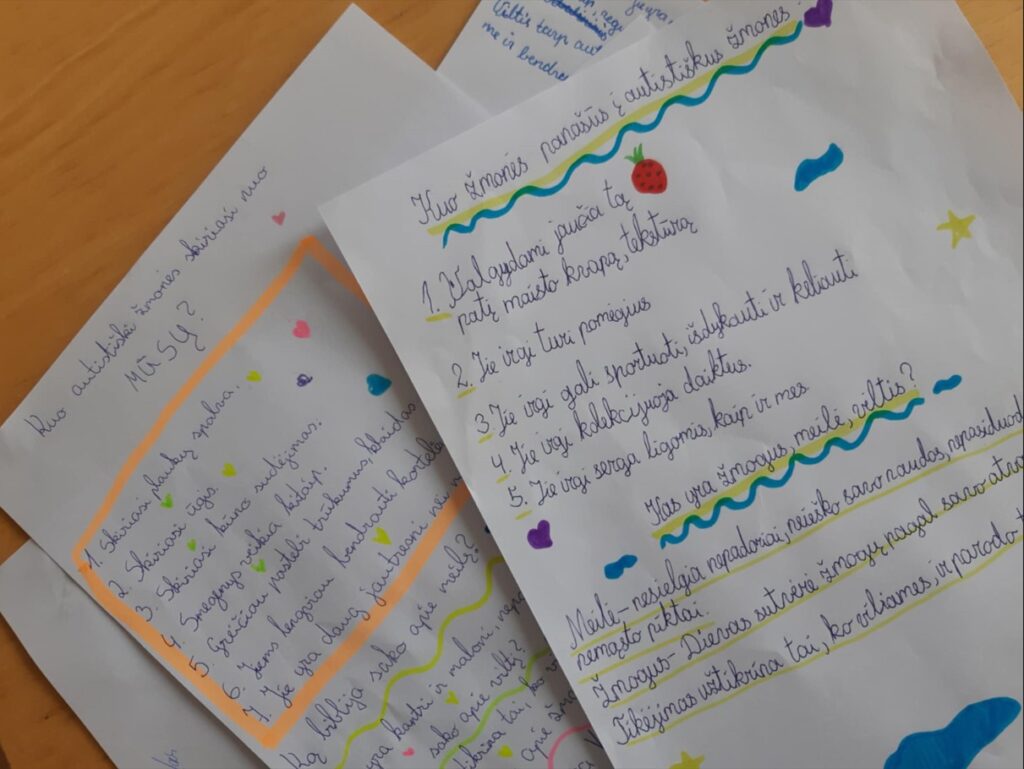 Kuo žmonės panašūs į autistiškus žmones?
1. Valgydami jaučia tą
patį maisto kvapą, tekstūrą
2. Jie irgi turi pomėgius
3. Jie irgi gali sportuoti, išdykauti ir keliauti
4. Jie irgi kolekcijuoja daiktus.
5. Jie irgi serga ligomis, kaip ir mes
Kas yra žmogus, meilė, viltis?
Meilė - nesielgia nepadoriai, neieško savo naudos, nepasiduod
nemąsto piktai.
Žmogus - Dievas sutvėrė žmogų pagal savo atva
Tikėjimas užtikrina tai, ko viliamės ir parodo
Kuo autistiški žmonės skiriasi nuo
mūsų?
1. Skiriasi plaukų spalva.
2. Skiriasi ūgis.
3. Skiriasi kūno sudėjimas.
4. Smegenys veikia kitaip.
5. Greičiau pastebi trūkumus, klaidas
6. Jiems lengviau bendrauti kortelė
7. Jie yra daug jautresni
Ką biblija sako apie meilę?
yra kantri ir maloni,
sako apie viltį?
tai,
apie
Viltis tarp aut
me ir bendra